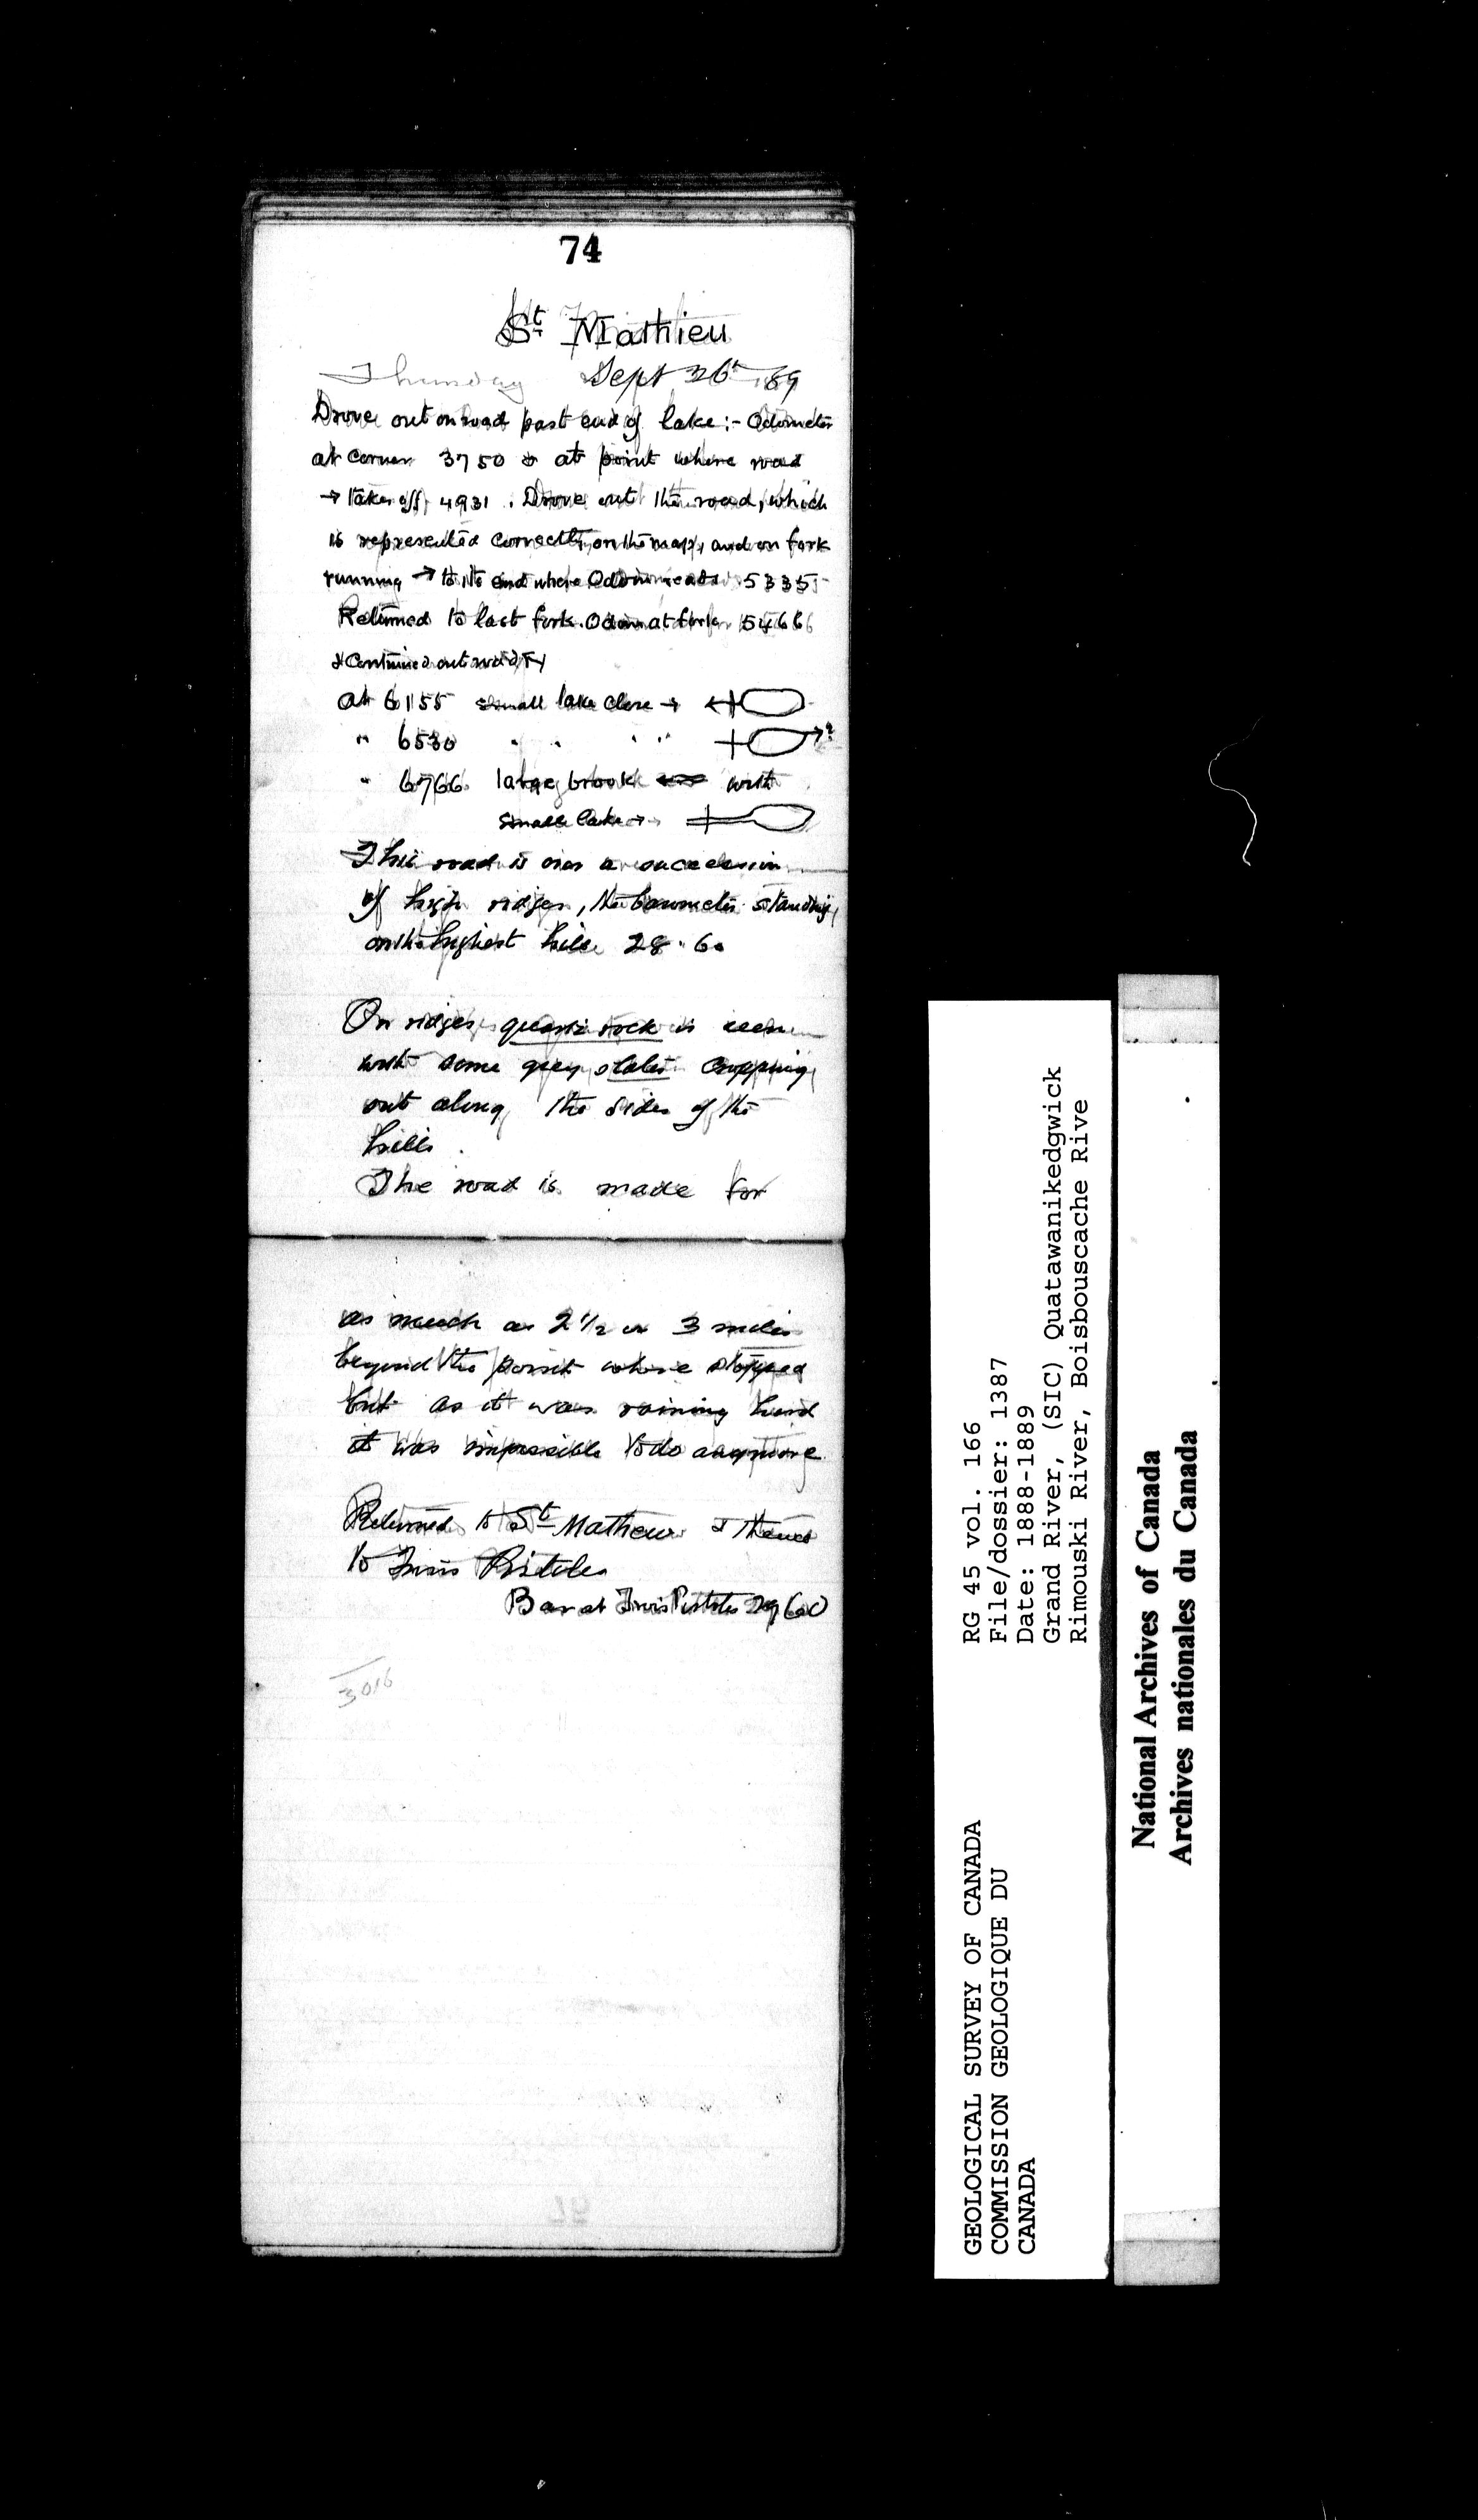 74
St Mathieu
Thursday Sept 26th /89
Drove out on road past end of lake :- Odometer
at corner 3750 & at point where road
→ takes off, 4931. Drove out the road, which
is represented correctly, on the map, and on fork
running → to its end where Odom reads 5335
Returned to last fork. Odom at fork 5466
& Continued out road
at 6155 small lake close →
" 6530 " " " " ?
" 6766 large brook with
small lake →
This road is over a succession
of high ridges, the barometer standing,
on the highest hill 28.60
On ridges quartz rock is seen
with some grey slates cropping
out along the sides of the
hills.
The road is made for
as much as 2 1/2 or 3 miles
beyond the point where stopped
but as it was raining hard
it was impossible to do anymore
Returned to St Mathieu & thence
to Trois Pistoles
Bar at Trois Pistoles 29 60
3016
GEOLOGICAL SURVEY OF CANADA
COMMISSION GEOLOGIQUE DU
CANADA
RG 45 vol. 166
File/dossier: 1387
Date: 1888-1889
Grand River, (SIC) Quatawanikedgwick
Rimouski River, Boisbouscache Rive
National Archives of Canada
Archives nationales du Canada